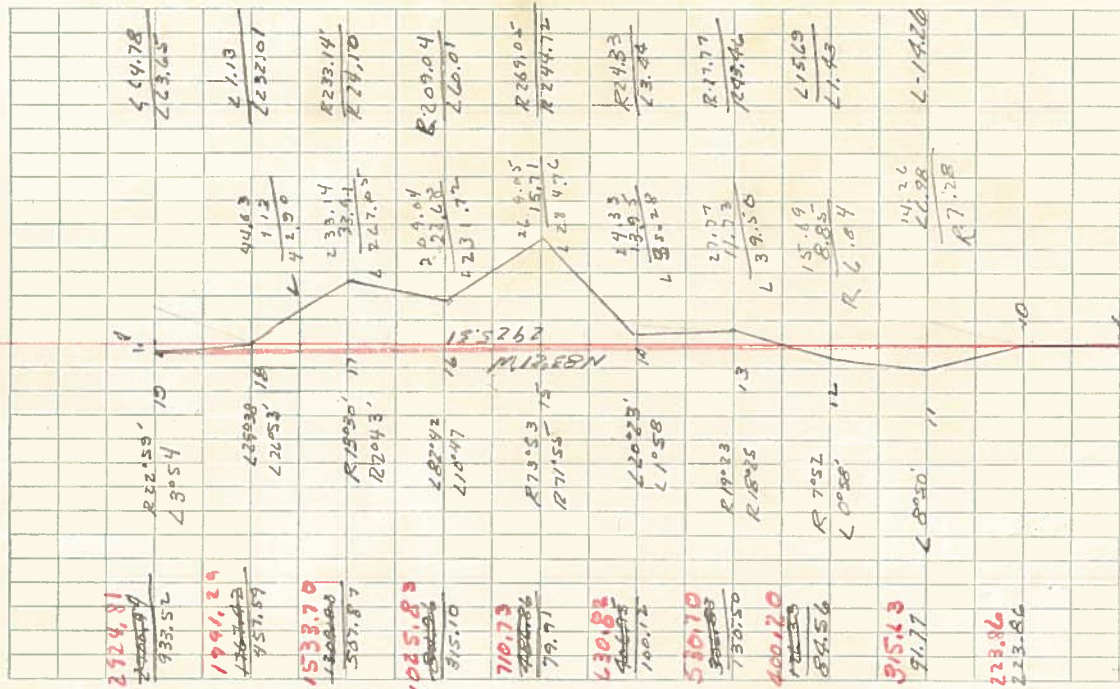 L64.78
L63.65
L1.13
L232.01
R233.14'
R24.10
R209.04
L60.01
R269.05
R244.72
R24.33
L3.44
R27.77
R43.46
L15.69
L1.43
L-14.26
44.63
1.13
233.14
L267.05
209.04
22.68
L231.72
269.05
15.71
L284.76
24.33
13.95
27.77
11.73
L39.50
15.69
8.85
R6.84
14.26
R7.28
19
18
17
16
15
14
13
12
11
10
2925.31
N83°21'W
R22°59'
L3°54
L26°53'
R2°43'
L82°42
L10°47
R73°53
R71°55'
L20°23'
L1°58
R19°23
R18°25
R7°52
L0°58'
L8°50'
2924.81
933.52
1991.29
457.59
1533.70
507.87
1025.83
315.10
710.73
79.91
630.82
100.12
530.70
130.50
400.20
84.56
315.63
91.77
223.86
223.86